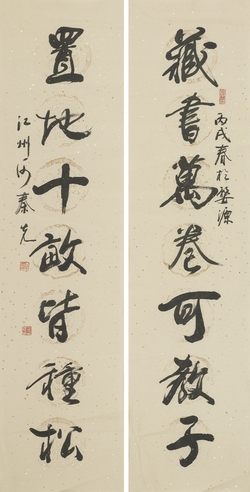 藏書萬卷可教子
丙戌春於婺源
置地十畝皆種松
江州何秦克